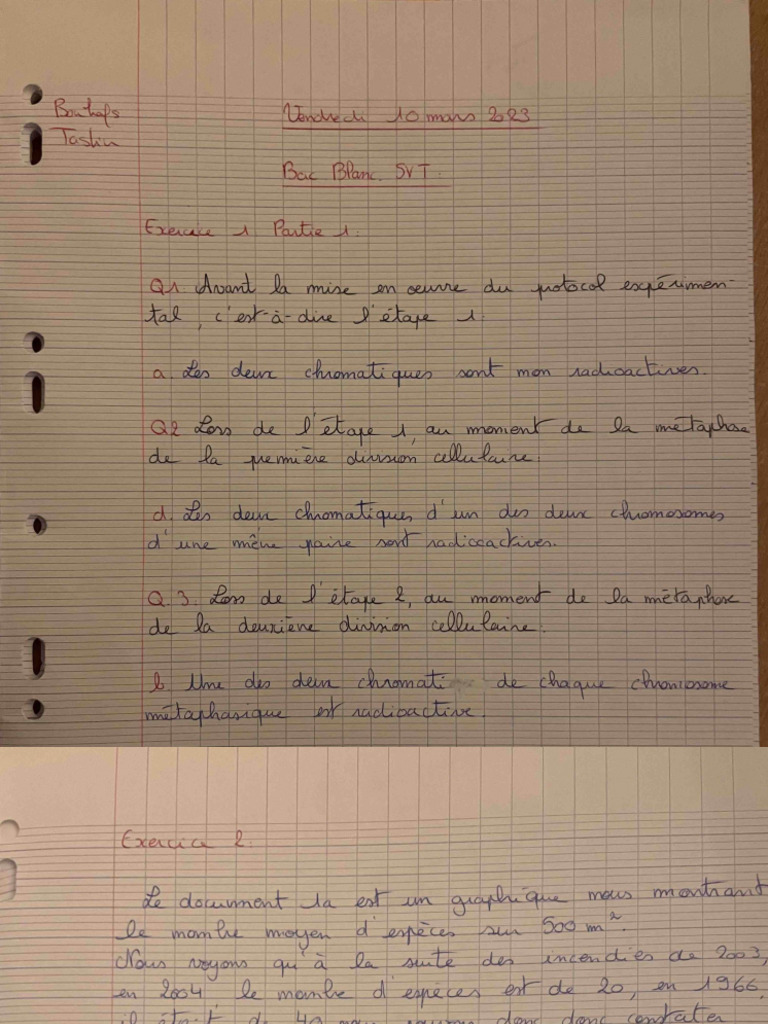 Bouhafs
Vendredi 10 mars 2023
Taslim
Bac Blanc. SVT.
Exercice 1. Partie 1.
Q1. Avant la mise en oeuvre du protocol expérimen-
tal, c'est-à-dire l'étape 1.
a. Les deux chromatiques sont non radioactives.
Q2 Lors de l'étape 1, au moment de la métaphase
de la première division cellulaire.
d. Les deux chromatiques d'un des deux chromosomes
d'une même paire sont radioactives.
Q.3. Lors de l'étape 2, au moment de la métaphase
de la deuxième division cellulaire.
b. Une des deux chromati de chaque chromosome
métaphasique est radioactive.
Exercice 2.
Le document 1a est un graphique nous montrant
le nombre moyen d'espèces sur 500 m².
Nous voyons qu'à la suite des incendies de 2003,
en 2004 le nombre d'espèces est de 20, en 1966,
il était de 40 nous pouvons donc donc constater